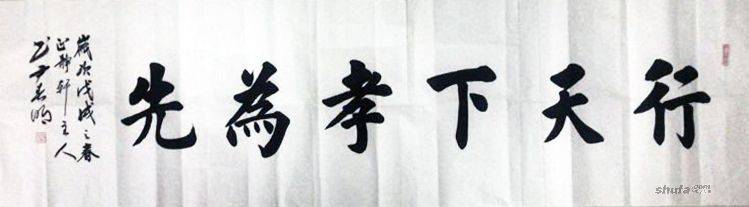 行天下孝為先
歲次戊戌之春
正靜軒主人
shufa.com